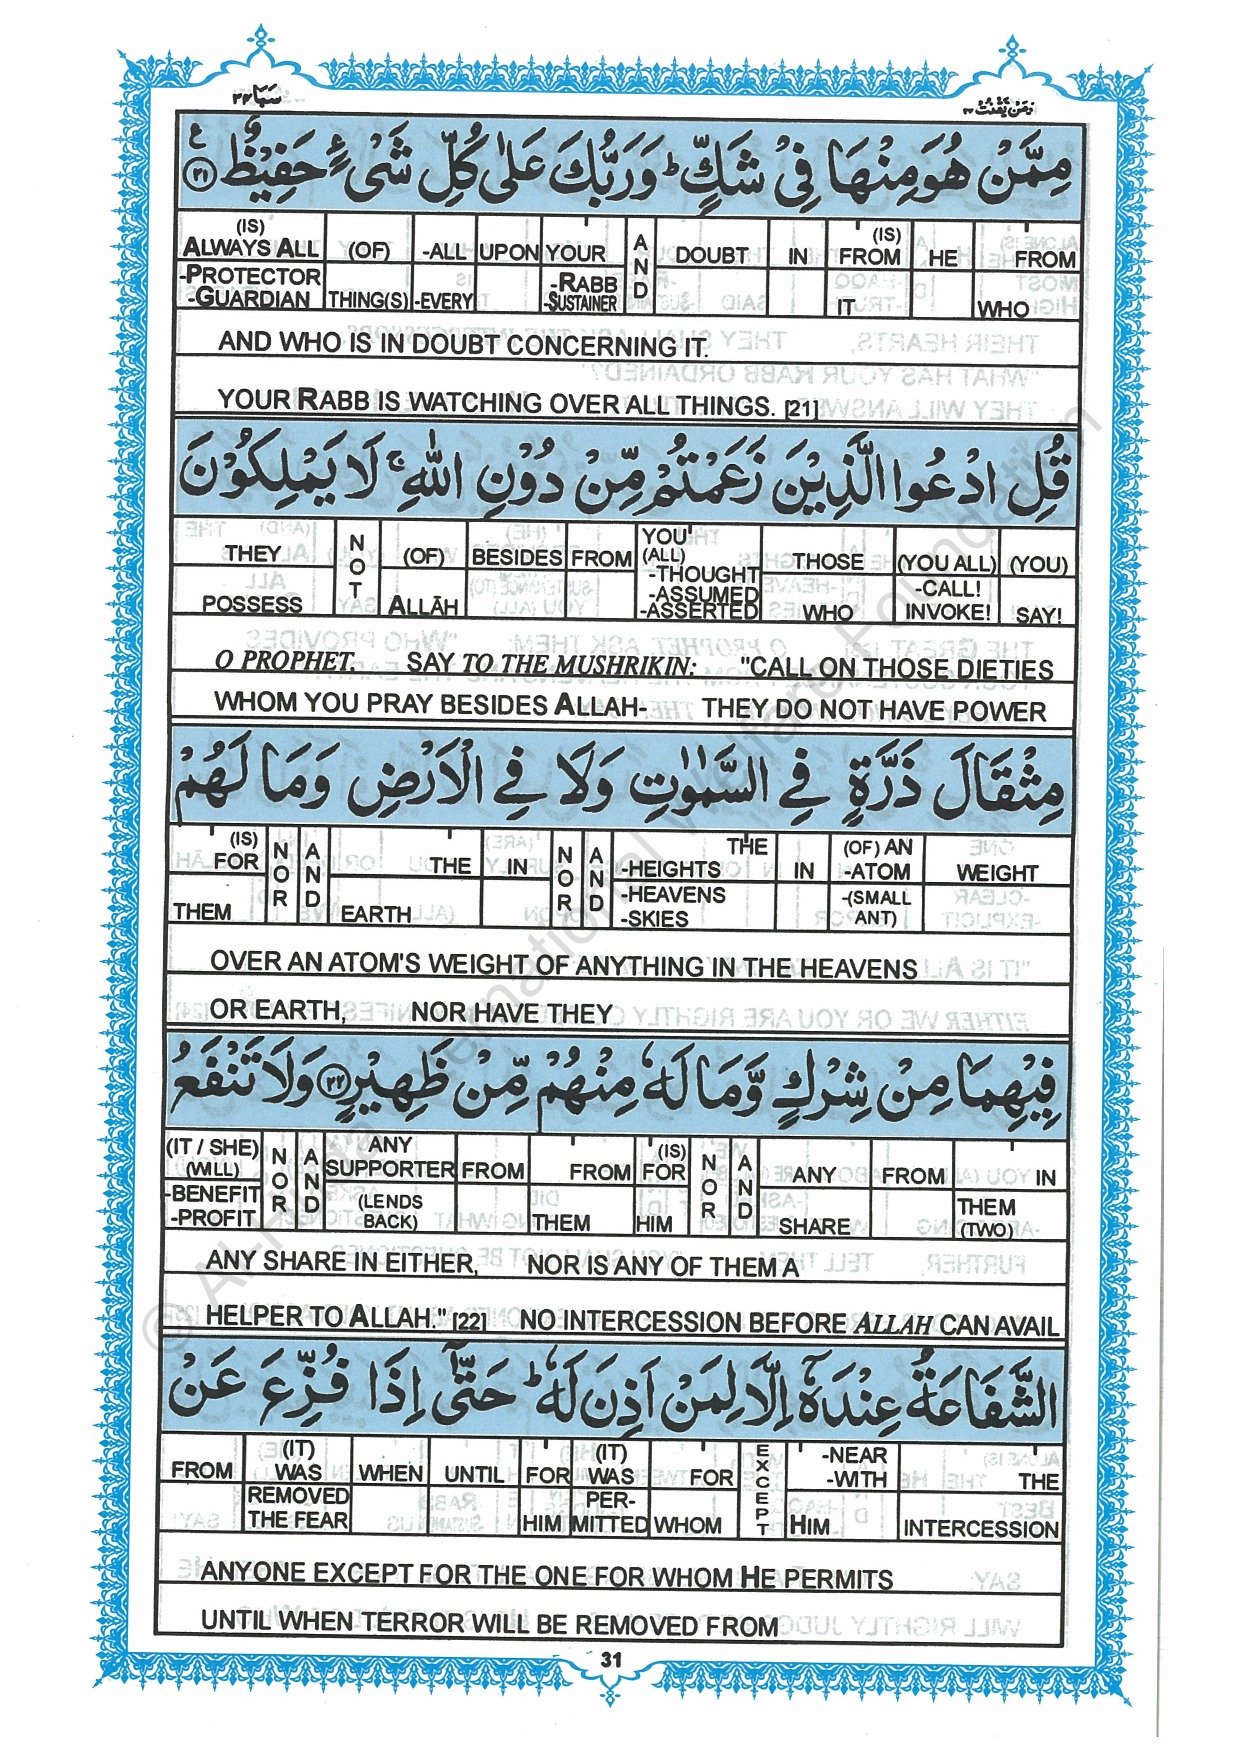 سبا ٣٤
ومن يقنت ٢٢
مِمَّنْ هُوَ مِنْهَا فِىْ شَكٍّ ؕ وَرَبُّكَ عَلٰى كُلِّ شَىْءٍ حَفِيْظٌ ﴿۲۱﴾ ع
(IS) ALWAYS ALL -PROTECTOR -GUARDIAN | (OF) THING(S) | -ALL -EVERY | UPON | YOUR -RABB -SUSTAINER | AND | DOUBT | IN | (IS) FROM IT | HE | FROM WHO
AND WHO IS IN DOUBT CONCERNING IT.
YOUR RABB IS WATCHING OVER ALL THINGS. [21]
قُلِ ادْعُوا الَّذِيْنَ زَعَمْتُمْ مِّنْ دُوْنِ اللّٰهِ ۚ لَا يَمْلِكُوْنَ
THEY POSSESS | NOT | (OF) ALLĀH | BESIDES | FROM | YOU (ALL) -THOUGHT -ASSUMED -ASSERTED | THOSE WHO | (YOU ALL) -CALL! INVOKE! | (YOU) SAY!
O PROPHET, SAY TO THE MUSHRIKIN: "CALL ON THOSE DIETIES
WHOM YOU PRAY BESIDES ALLAH- THEY DO NOT HAVE POWER
مِثْقَالَ ذَرَّةٍ فِى السَّمٰوٰتِ وَلَا فِى الْاَرْضِ وَمَا لَهُمْ
(IS) FOR THEM | NOR | AND | THE EARTH | IN | NOR | AND | THE -HEIGHTS -HEAVENS -SKIES | IN | (OF) AN -ATOM -(SMALL ANT) | WEIGHT
OVER AN ATOM'S WEIGHT OF ANYTHING IN THE HEAVENS
OR EARTH, NOR HAVE THEY
فِيْهِمَا مِنْ شِرْكٍ وَّمَا لَهٗ مِنْهُمْ مِّنْ ظَهِيْرٍ ﴿۲۲﴾ وَلَا تَنْفَعُ
(IT / SHE) (WILL) -BENEFIT -PROFIT | NOR | AND | ANY SUPPORTER (LENDS BACK) | FROM | FROM THEM | (IS) FOR HIM | NOR | AND | ANY SHARE | FROM | IN THEM (TWO)
ANY SHARE IN EITHER, NOR IS ANY OF THEM A
HELPER TO ALLAH." [22] NO INTERCESSION BEFORE ALLAH CAN AVAIL
الشَّفَاعَةُ عِنْدَهٗۤ اِلَّا لِمَنْ اَذِنَ لَهٗ ؕ حَتّٰۤى اِذَا فُزِّعَ عَنْ
FROM | (IT) WAS REMOVED THE FEAR | WHEN | UNTIL | FOR HIM | (IT) WAS PER-MITTED | FOR WHOM | EXCEPT | -NEAR -WITH HIM | THE INTERCESSION
ANYONE EXCEPT FOR THE ONE FOR WHOM HE PERMITS
UNTIL WHEN TERROR WILL BE REMOVED FROM
31